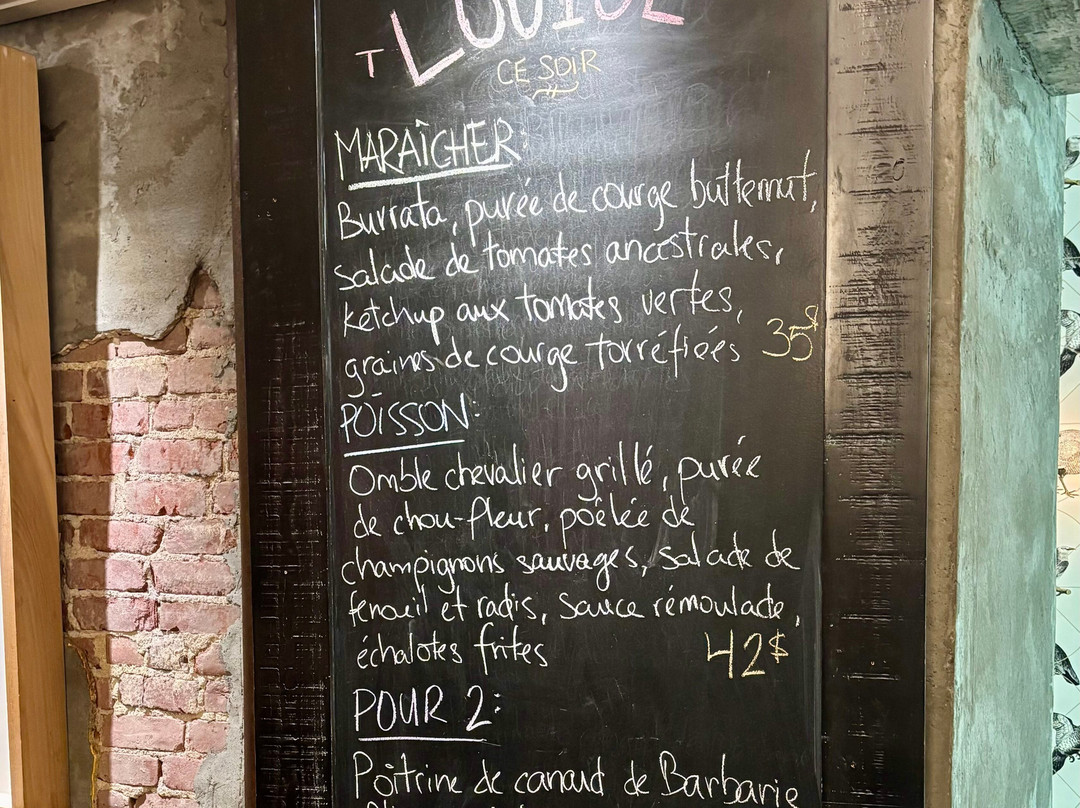 T LOUISE
CE SOIR
MARAÎCHER:
Burrata, purée de courge butternut,
salade de tomates ancestrales,
ketchup aux tomates vertes,
graines de courge torréfiées 35$
POISSON:
Omble chevalier grillé, purée
de chou-fleur, poêlée de
champignons sauvages, salade de
fenouil et radis, sauce rémoulade,
échalotes frites 42$
POUR 2:
Poitrine de canard de Barbarie